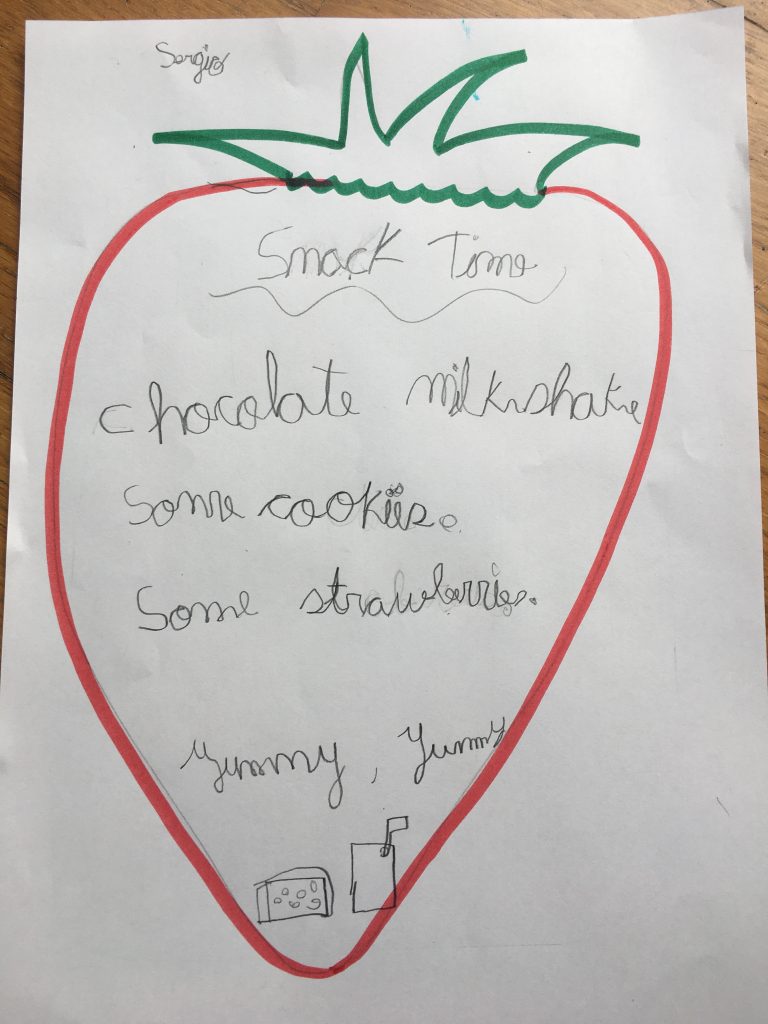 Sergio
Snack Time
chocolate milkshake
Some cookies.
Some strawberries.
Yummy, Yummy